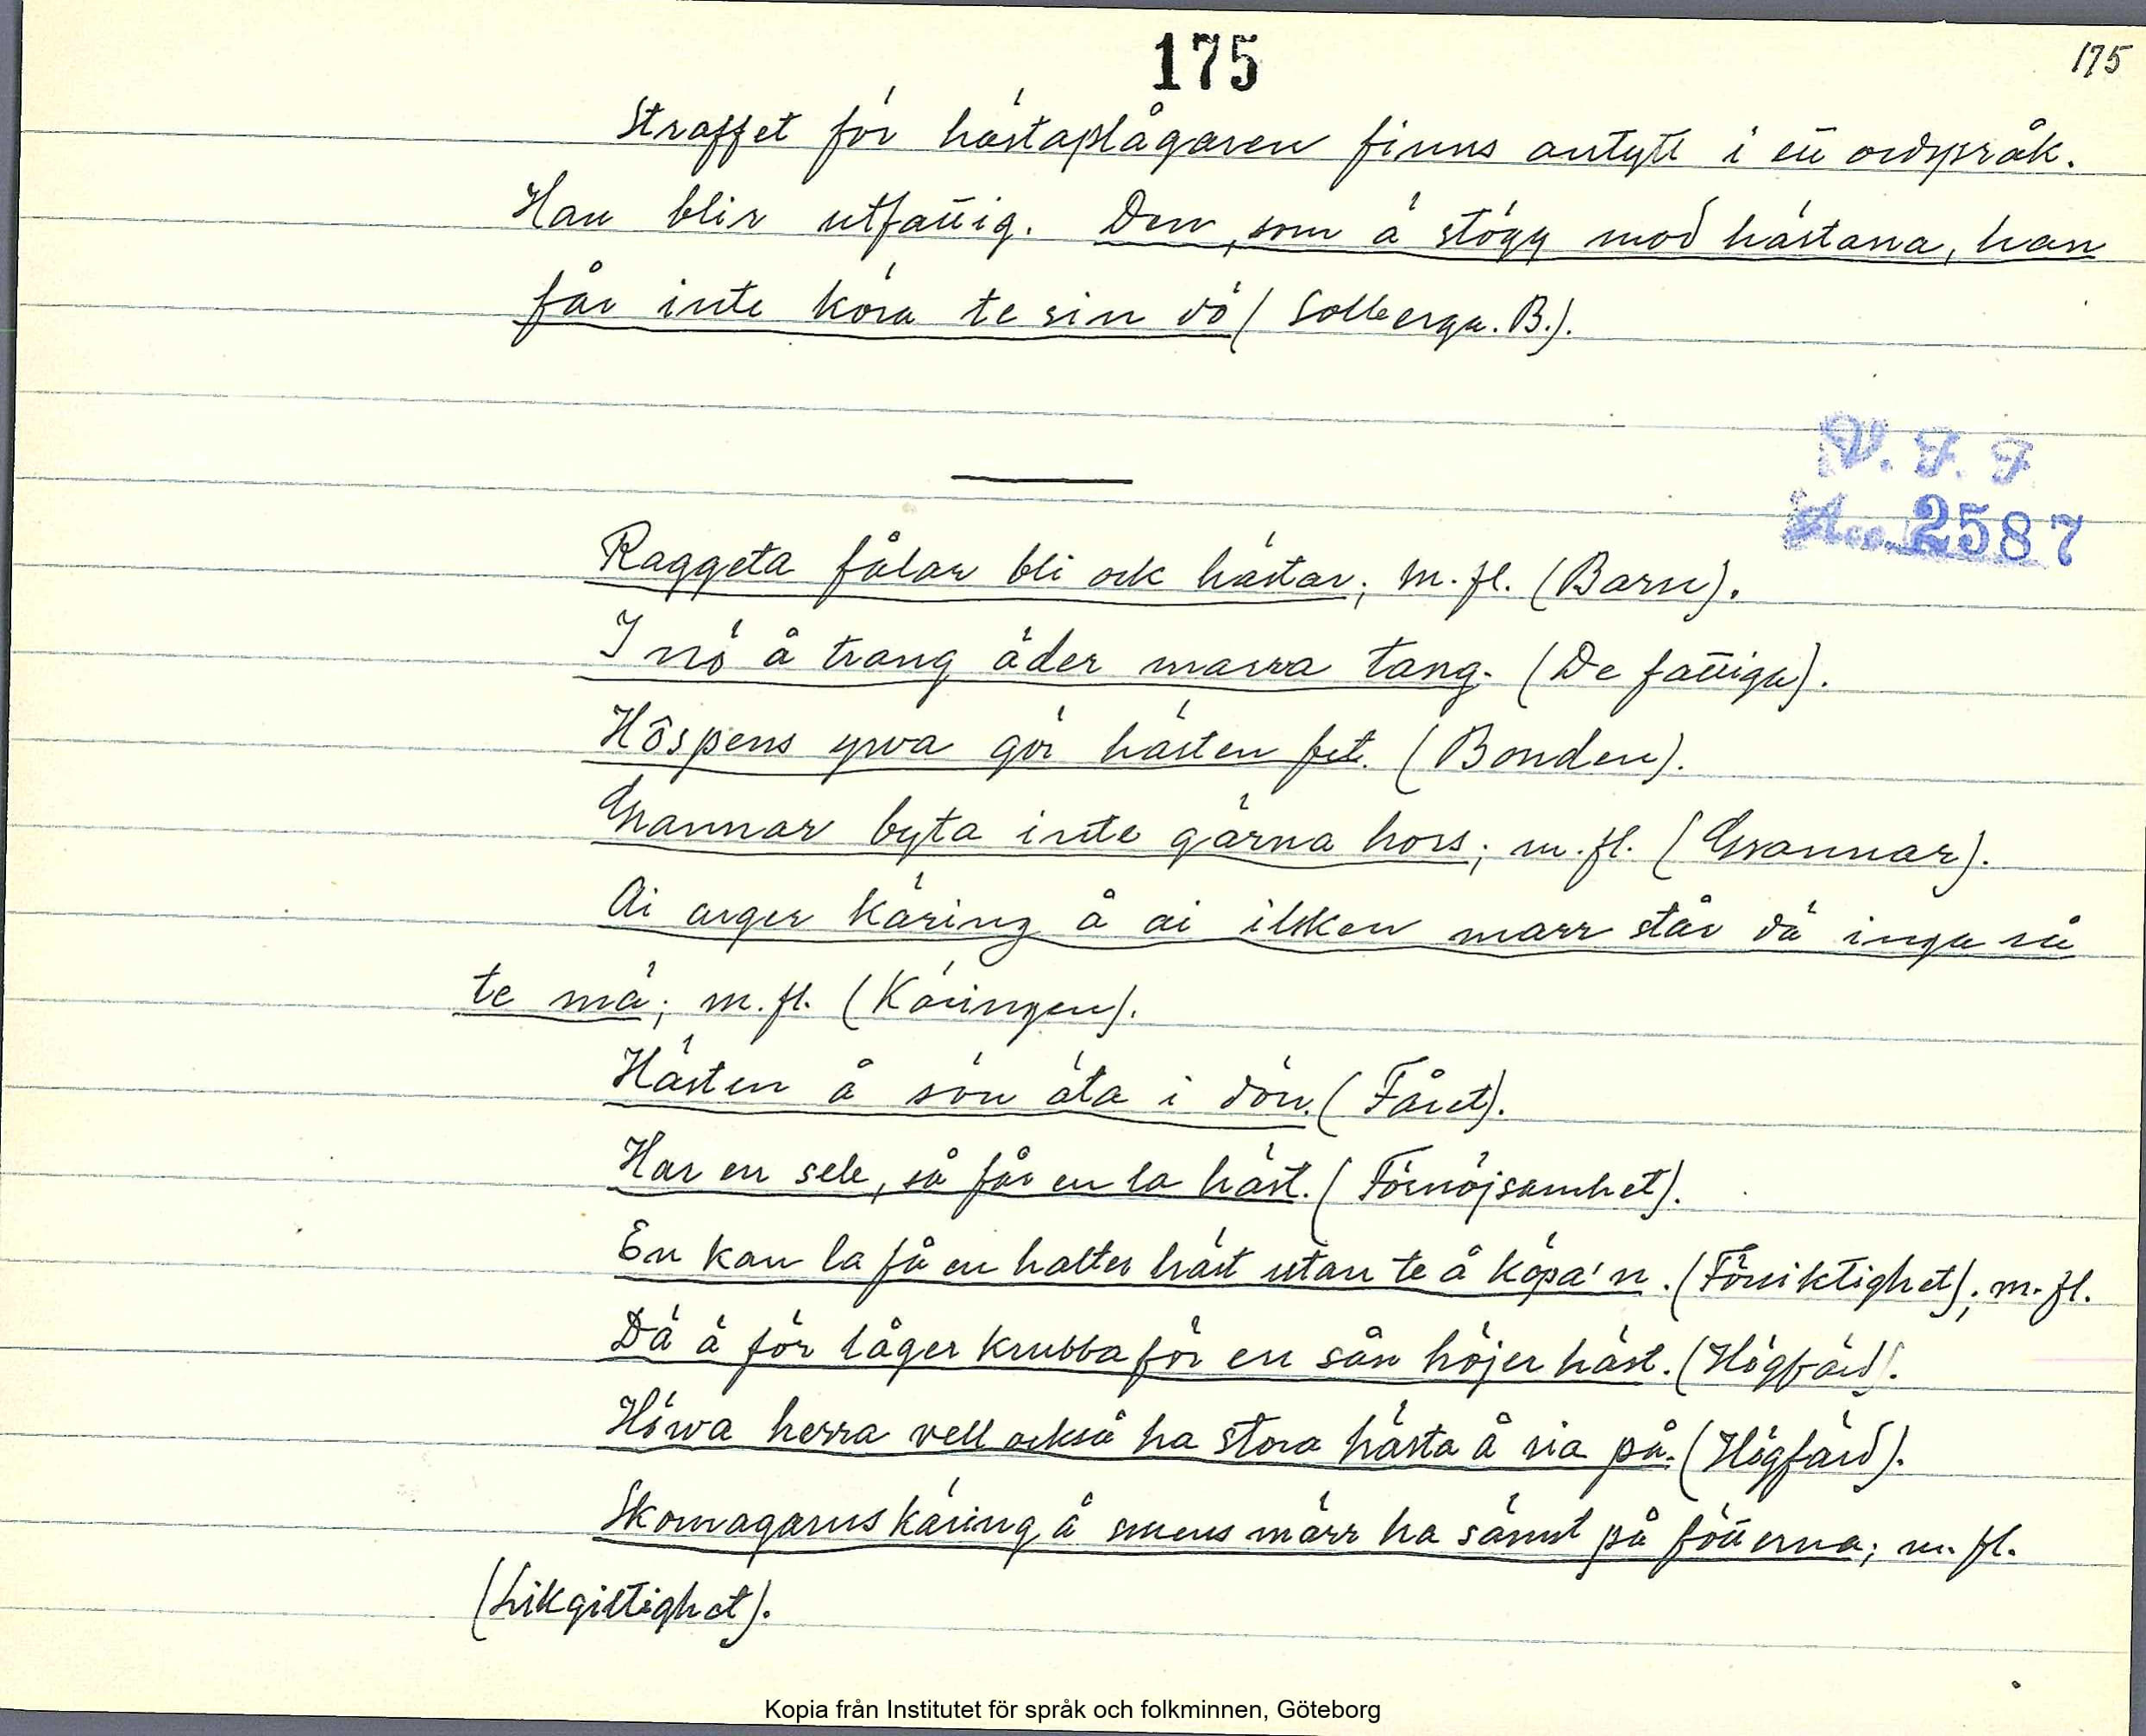 175
175
Straffet för hästaplågaren finns antytt i ett ordspråk.
Han blir utfattig. Den, som ä stögg mod hästana, han
får inte köra te sin dö (Solberga. B.).
V. F. F
Acc. 2587
Raggeta fålar bli ock hästar; m. fl. (Barn).
I nö å trang äder marra tang. (De fattiga).
Hôspens yva gör hästen fet. (Bonden).
Grannar byta inte gärna hors; m. fl. (Grannar).
Ai arger käring å ai ilsken marr står dä inga rå
te mä; m. fl. (Käringen).
Hästen å sön äta i dön. (Fåret).
Har en sele, så får en la häst. (Förnöjsamhet).
En kan la få en halter häst utan te å köpa'n. (Försiktighet); m. fl.
Dä ä för låger krubba för en sån höjer häst. (Högfärd).
Höwa herra vell också ha stora hästa å ria på. (Högfärd).
Skomagarns käring å smens märr ha sämst på fötterna; m. fl.
(Likgiltighet).
Kopia från Institutet för språk och folkminnen, Göteborg